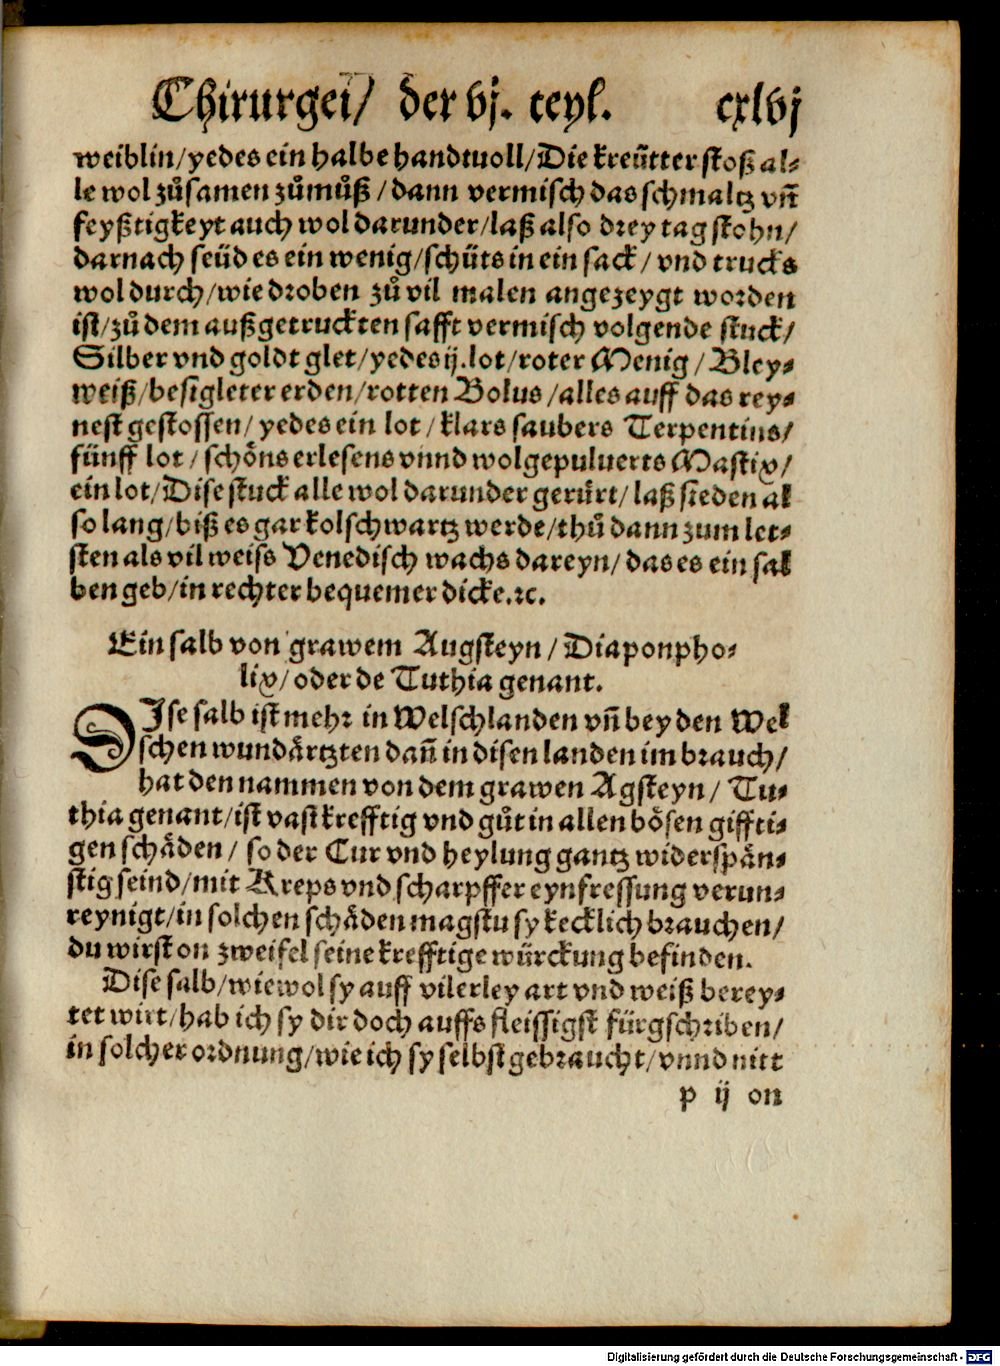 Chirurgei/ der vj. teyl. cxlvj
weiblin/yedes ein halbe handtuoll/Die kreütter stoß al⸗
le wol zůsamen zůmůß/dann vermisch das schmaltz vn̄
feyßtigkeyt auch wol darunder/laß also drey tag stohn/
darnach seüd es ein wenig/schüts in ein sack/vnd trucks
wol durch/wie droben zů vil malen angezeygt worden
ist/zů dem außgetruckten safft vermisch volgende stuck/
Silber vnd goldt glet/yedes ij.lot/roter Menig/Bley⸗
weiß/besigleter erden/rotten Bolus/alles auff das rey⸗
nest gestossen/yedes ein lot/klars saubers Terpentins/
fünff lot/schöns erlesens vnnd wolgepuluerts Mastix/
ein lot/Dise stuck alle wol darunder gerürt/laß sieden al
so lang/biß es gar kolschwartz werde/thů dann zum let⸗
sten als vil weiss Venedisch wachs dareyn/das es ein sal
ben geb/in rechter bequemer dicke.ꝛc.
Ein salb von grawem Augsteyn/Diaponpho⸗
lix/oder de Tuthia genant.
DIse salb ist mehr in Welschlanden vn̄ bey den Wel
schen wundärtzten dan̄ in disen landen im brauch/
hat den nammen von dem grawen Agsteyn/Tu⸗
thia genant/ist vast krefftig vnd gůt in allen bösen giffti⸗
gen schäden/so der Cur vnd heylung gantz widerspän⸗
stig seind/mit Kreps vnd scharpffer eynfressung verun⸗
reynigt/in solchen schäden magstu sy kecklich brauchen/
du wirst on zweifel seine krefftige würckung befinden.
Dise salb/wiewol sy auff vilerley art vnd weiß berey⸗
tet wirt/hab ich sy dir doch auffs fleissigst fürgschriben/
in solcher ordnung/wie ich sy selbst gebraucht/vnnd nitt
p ij on
Digitalisierung gefördert durch die Deutsche Forschungsgemeinschaft - DFG